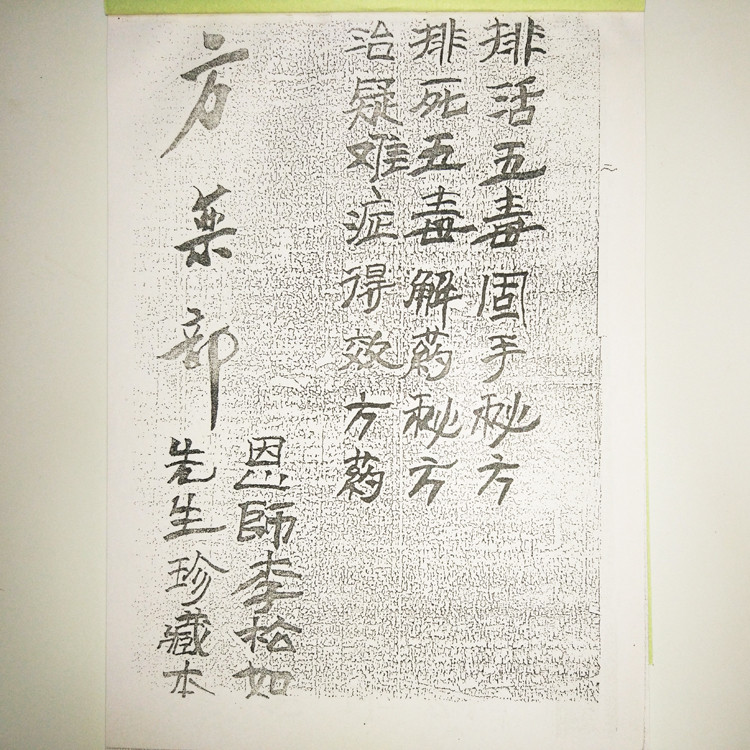 排活五毒固手秘方
排死五毒解药秘方
治疑难症得效方药
恩師李松如
先生珍藏本
方药部